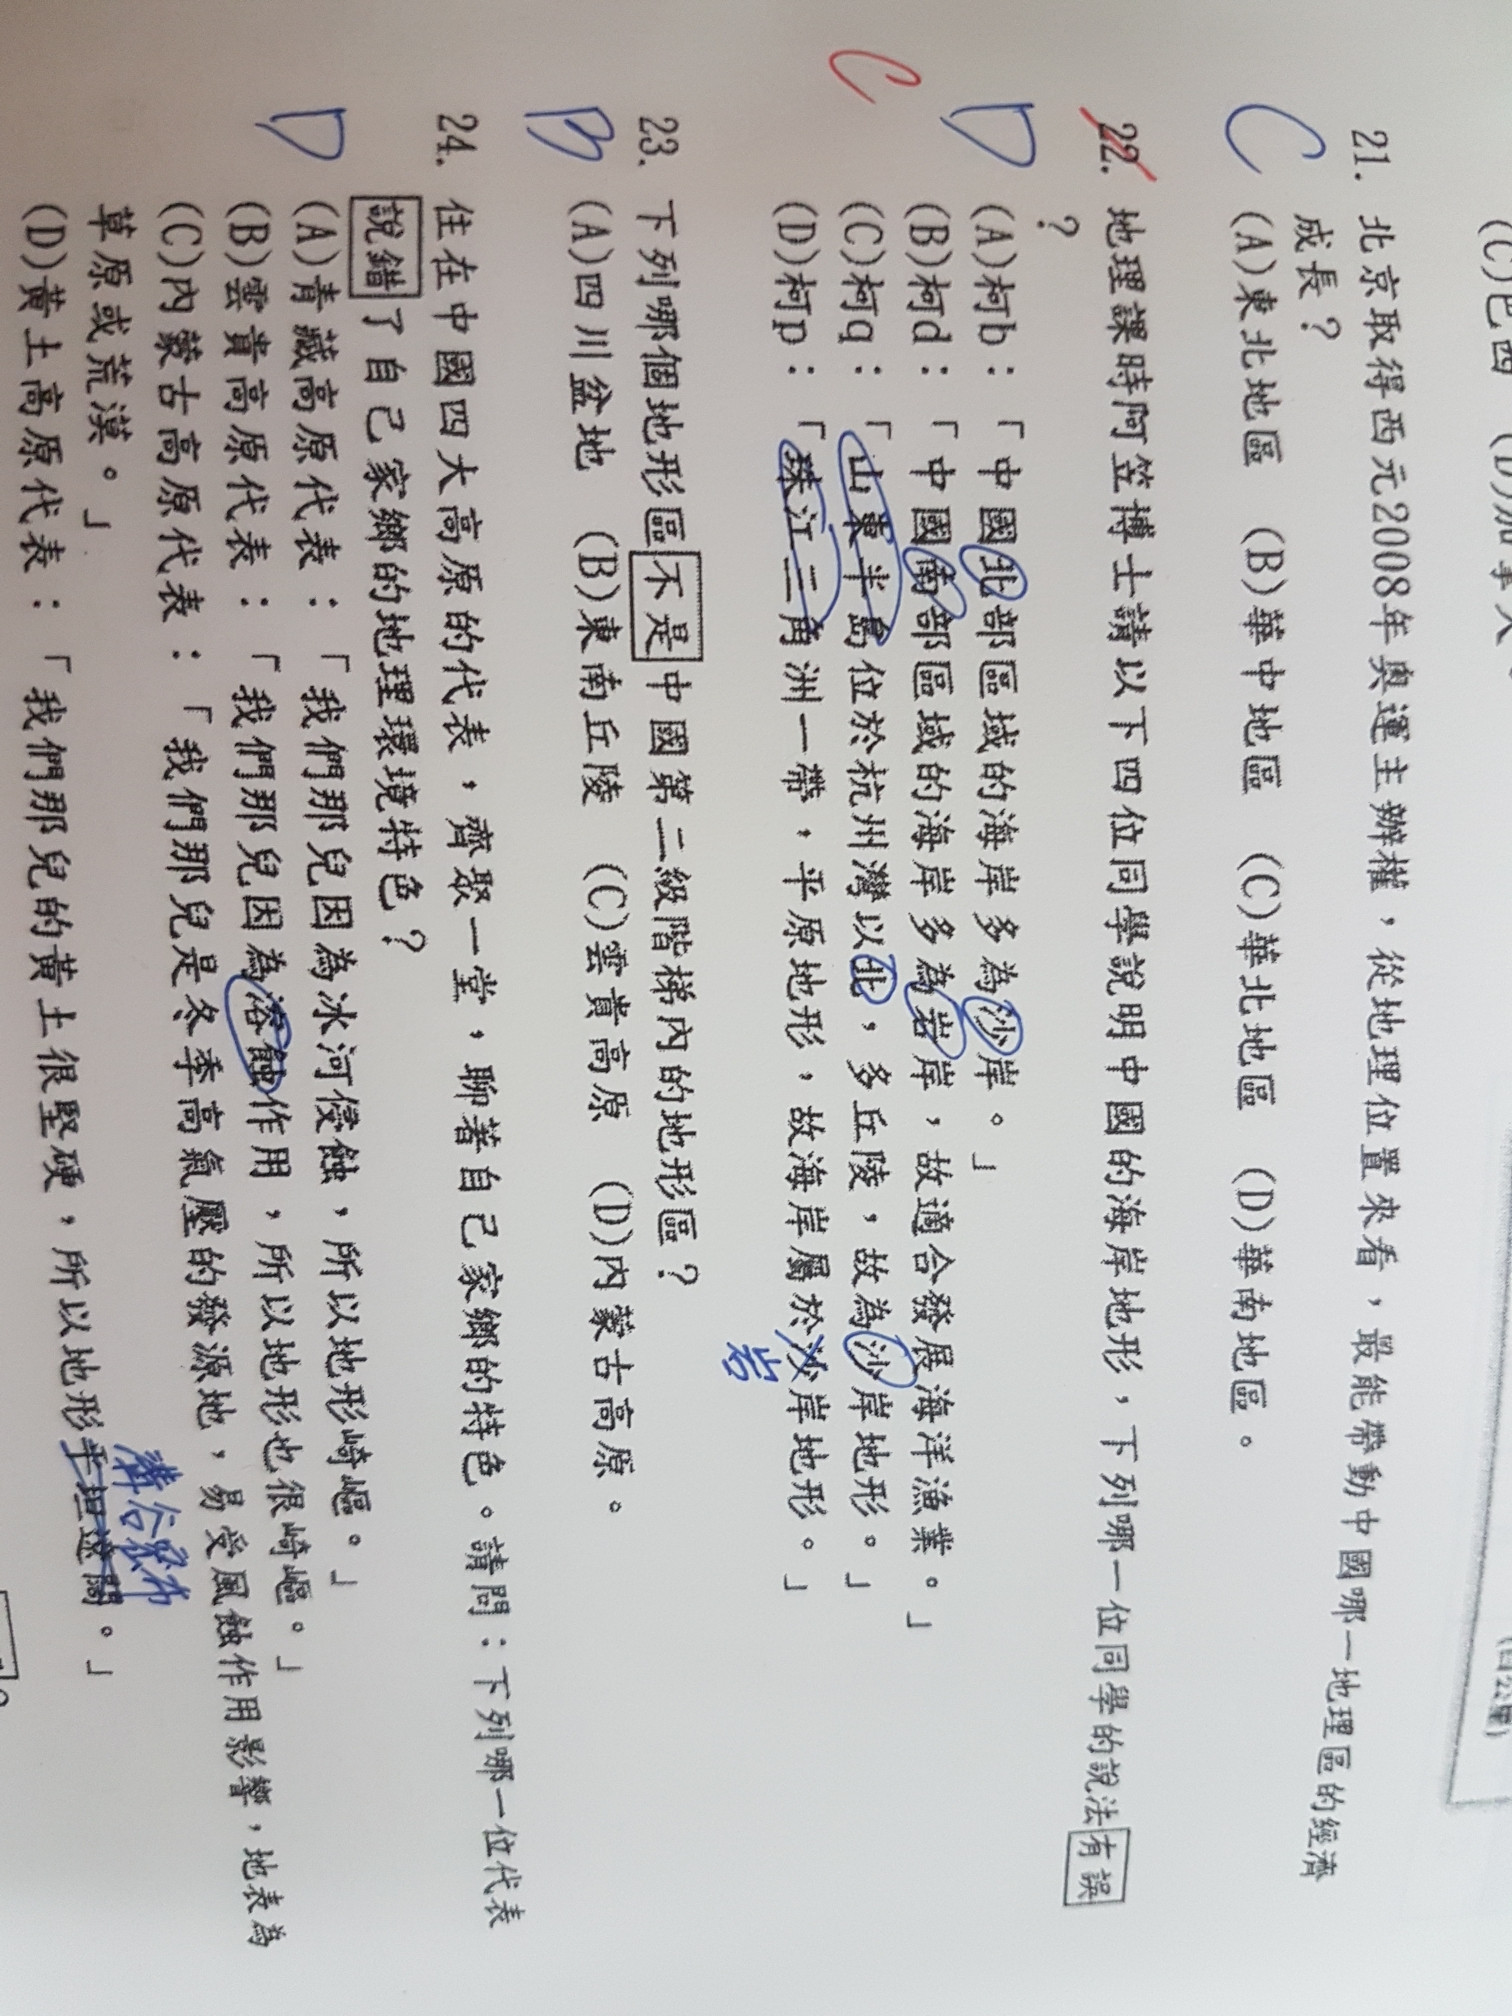 (C)巴西 (D)加拿大
(百公里)
21. 北京取得西元2008年奧運主辦權，從地理位置來看，最能帶動中國哪一地理區的經濟
成長？
C
(A)東北地區 (B)華中地區 (C)華北地區 (D)華南地區。
22. 地理課時阿笠博士請以下四位同學說明中國的海岸地形，下列哪一位同學的說法有誤
？
D
(A)柯b：「中國北部區域的海岸多為沙岸。」
(B)柯d：「中國南部區域的海岸多為岩岸，故適合發展海洋漁業。」
C
(C)柯q：「山東半島位於杭州灣以北，多丘陵，故為沙岸地形。」
(D)柯p：「珠江三角洲一帶，平原地形，故海岸屬於沙岸地形。」
岩
23. 下列哪個地形區不是中國第二級階梯內的地形區？
B
(A)四川盆地 (B)東南丘陵 (C)雲貴高原 (D)內蒙古高原。
24. 住在中國四大高原的代表，齊聚一堂，聊著自己家鄉的特色。請問：下列哪一位代表
說錯了自己家鄉的地理環境特色？
D
(A)青藏高原代表：「我們那兒因為冰河侵蝕，所以地形崎嶇。」
(B)雲貴高原代表：「我們那兒因為溶蝕作用，所以地形也很崎嶇。」
(C)內蒙古高原代表：「我們那兒是冬季高氣壓的發源地，易受風蝕作用影響，地表為
草原或荒漠。」
溝谷密布
(D)黃土高原代表：「我們那兒的黃土很堅硬，所以地形平坦遼闊。」